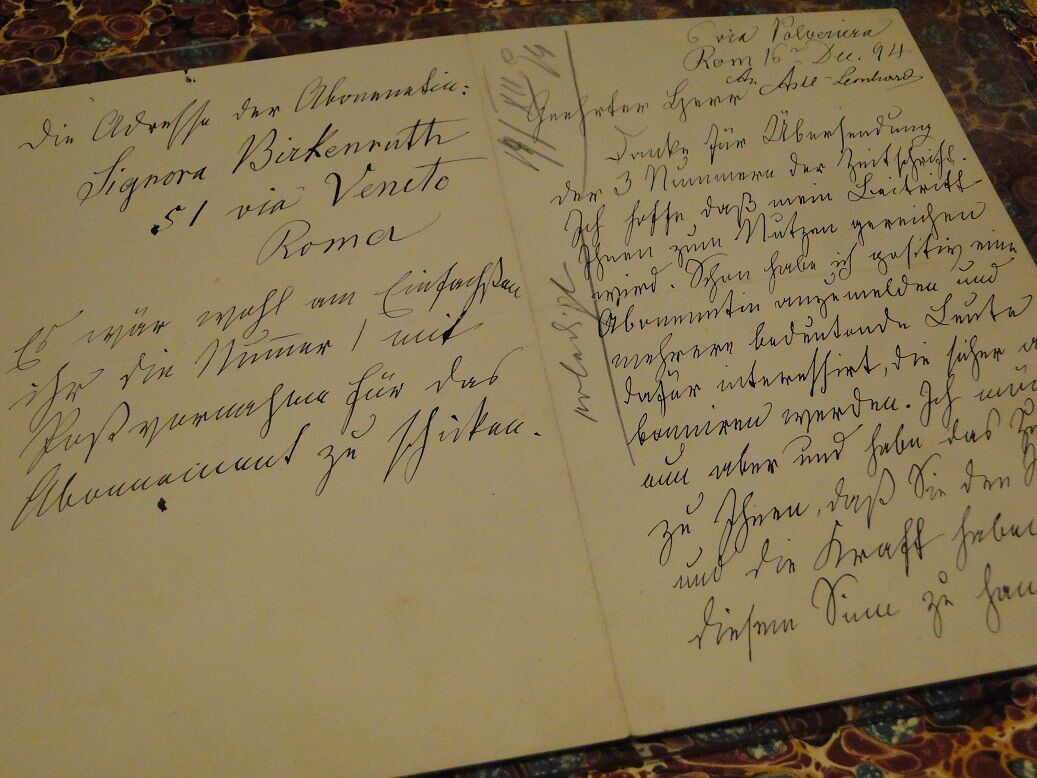 Die Adresse der Abonnentin:
Signora Birkenruth
51 via Veneto
Roma
Es wär wohl am Einfachsten
ihr die Nummer 1 mit
Postvornahme für das
Abonnement zu schicken.
6 via Polveriera
Rom 16 Dec. 94
19/XII 94
Geehrter Herr
Danke für Übersendung
der 3 Nummern der Zeitschrift.
Ich hoffe daß mein Beitritt
Ihnen zum Nutzen gereichen
wird. Schon habe ich positiv eine
Abonnentin anzumelden und
mehrere bedeutende Leute
dafür interessirt, die sicher a
bonniren werden. Ich
nun aber und habe das
zu Ihnen, daß Sie den
und die Kraft haben
diesem Sinn zu han